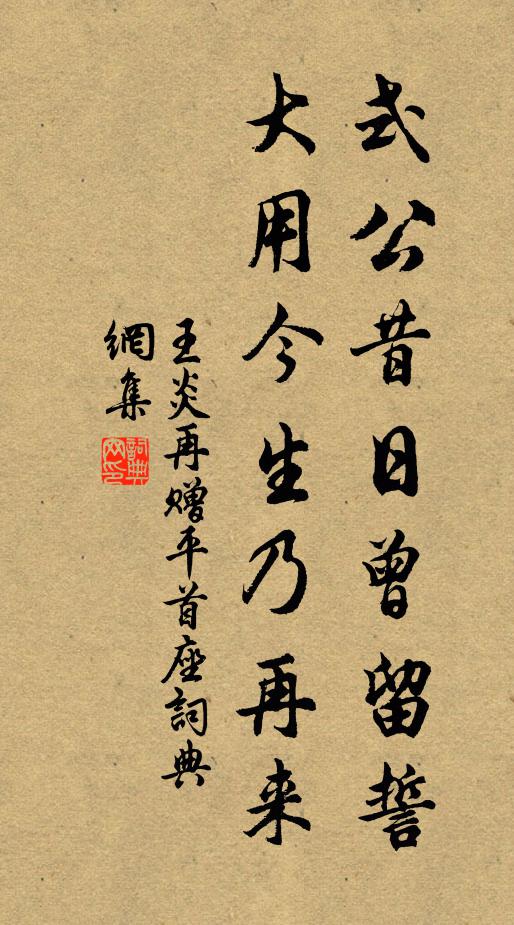 式公昔日曾留誓
大用今生乃再来
王炎再赠平首座詞典
網集
詞典網印